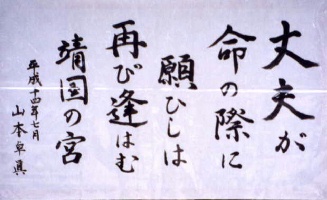 丈夫が
命の際に
願ひしは
再び逢はむ
靖国の宮
平成十四年七月
山本卓眞